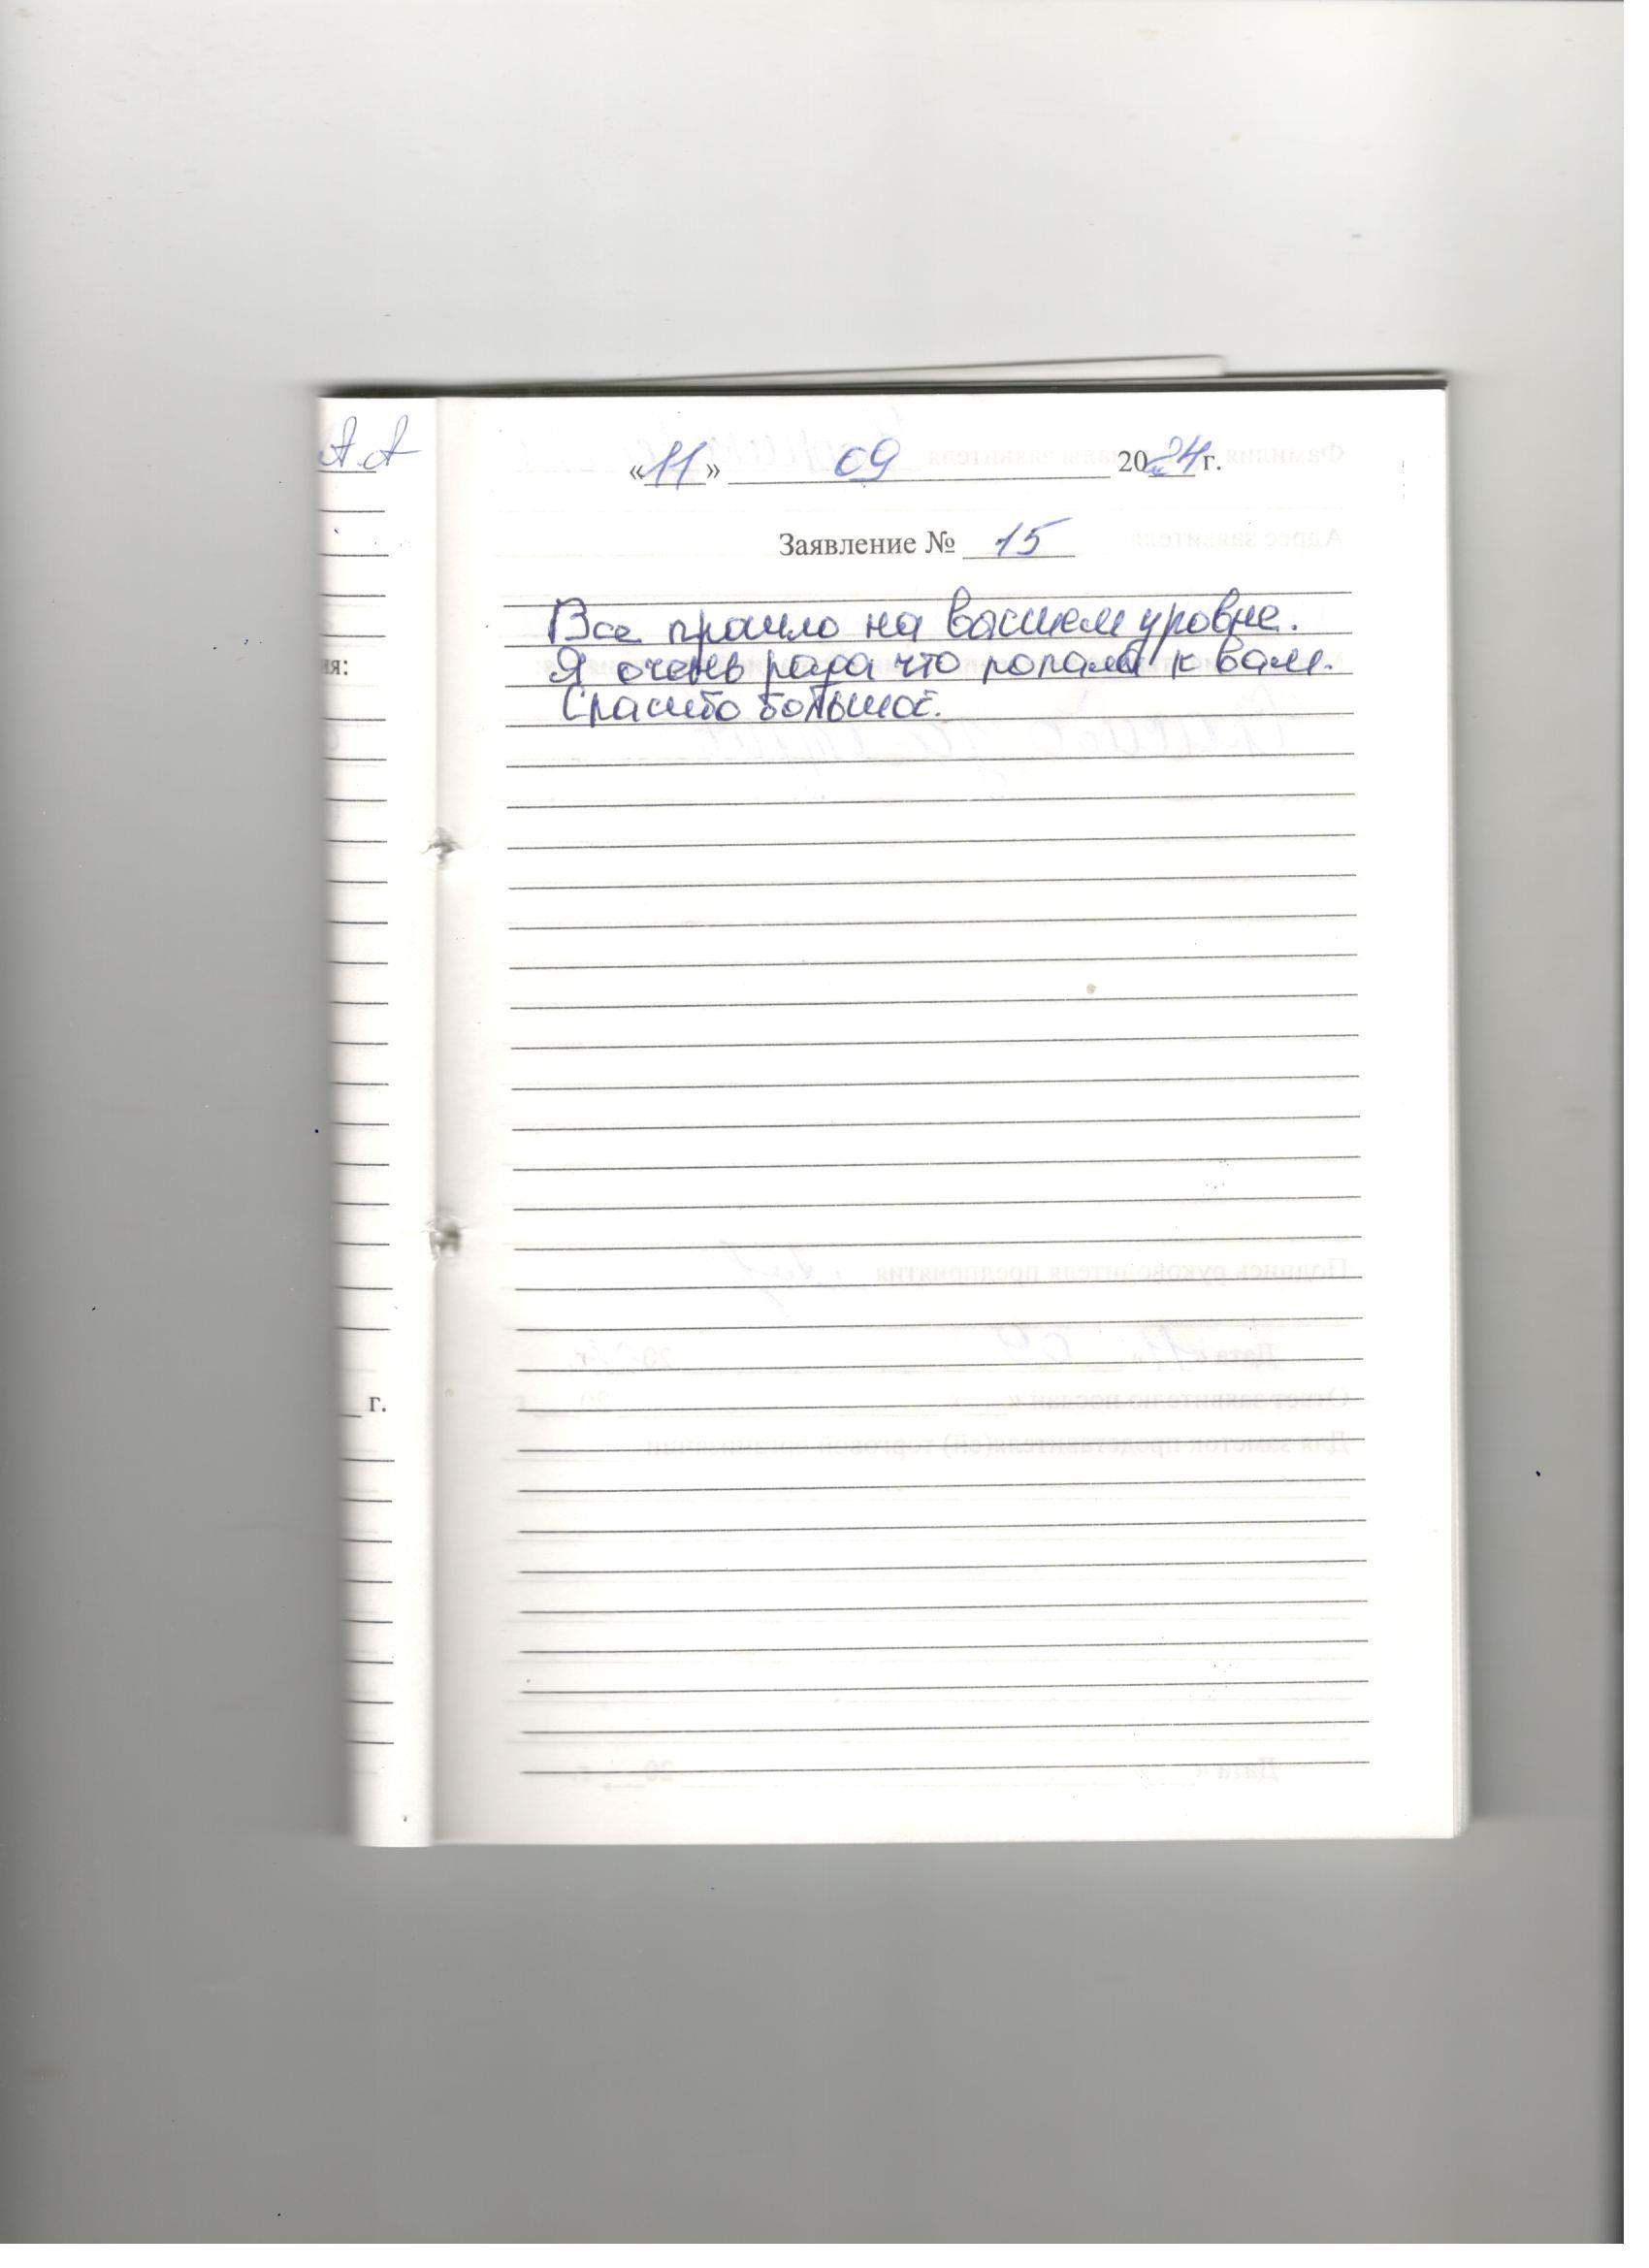 А.А
«11» 09 2024 г.
Заявление № 15
ия:
Все прашло на васшем уровне.
Я очень рада что попала к вам.
Спасибо большое.
г.